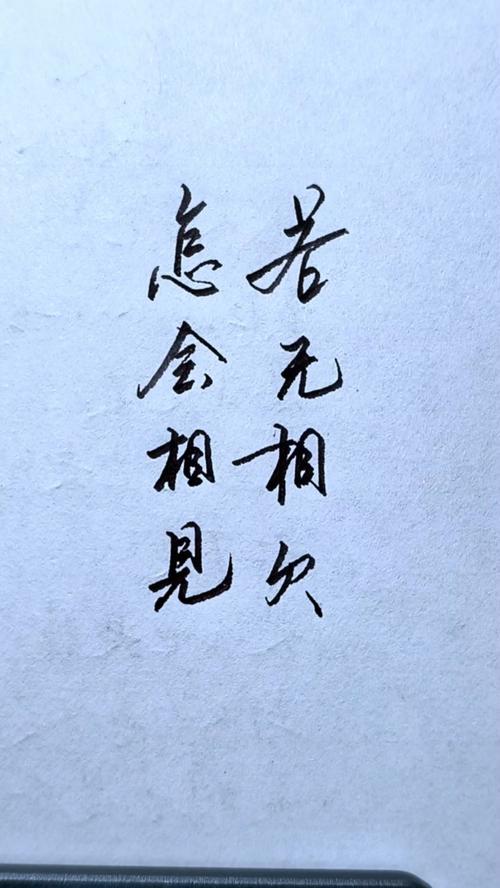 若无相欠
怎会相見